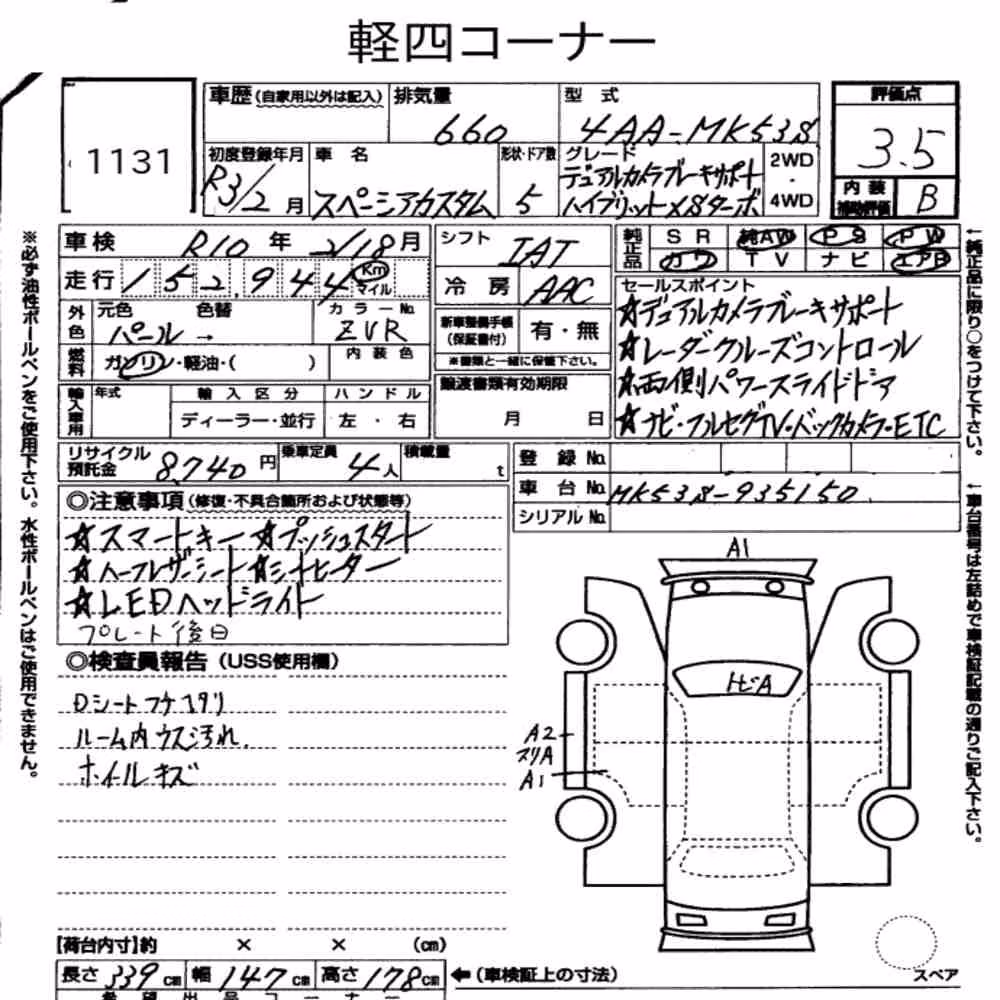 軽四コーナー
1131
車歴(自家用以外は記入) 排気量 660
型式 4AA-MK53S
評価点 3.5
内装補助評価 B
初度登録年月 R3/2月
車名 スペーシアカスタム
形状・ドア数 5
グレード デュアルカメラブレーキサポート
ハイブリットXSターボ
2WD・4WD
車検 R10年 2/18月
走行 152,944 Km マイル
シフト IAT
冷房 AAC
純正品 SR 純AW PS PW
カワ TV ナビ エアB
外色 元色 パール → 色替 カラーNo. ZVR
燃料 ガソリン・軽油・( ) 内装色
新車整備手帳(保証書付) 有・無
※書類と一緒に保管下さい。
セールスポイント
☆デュアルカメラブレーキサポート
☆レーダークルーズコントロール
☆両側パワースライドドア
☆ナビ・フルセグTV・バックカメラ・ETC
輸入車用 年式 輸入区分 ハンドル
ディーラー・並行 左・右
譲渡書類有効期限
月 日
リサイクル預託金 8,740円 乗車定員 4人 積載量 t
登録No.
車台No. MK53S-935150
シリアルNo.
◎注意事項(修復・不具合箇所および状態等)
☆スマートキー ☆プッシュスタート
☆ハーフレザーシート ☆シートヒーター
☆LEDヘッドライト
プレート後日
◎検査員報告(USS使用欄)
Dシートフチスリ
ルーム内ウス汚れ.
ホイールキズ
A1
トビA
A2
スリA
A1
スペア
【荷台内寸】約 × × (cm)
長さ 339cm 幅 147cm 高さ 178cm ←(車検証上の寸法)
希望出品コーナー
※必ず油性ボールペンをご使用下さい。水性ボールペンはご使用できません。
←純正品に限り○をつけて下さい。
←車台番号は左詰めで車検証記載の通りご記入下さい。